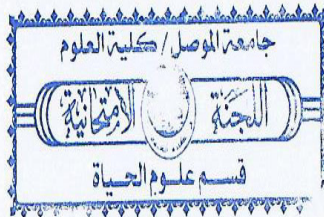 جامعة الموصل / كلية العلوم
اللجنة الامتحانية
قسم علوم الحياة